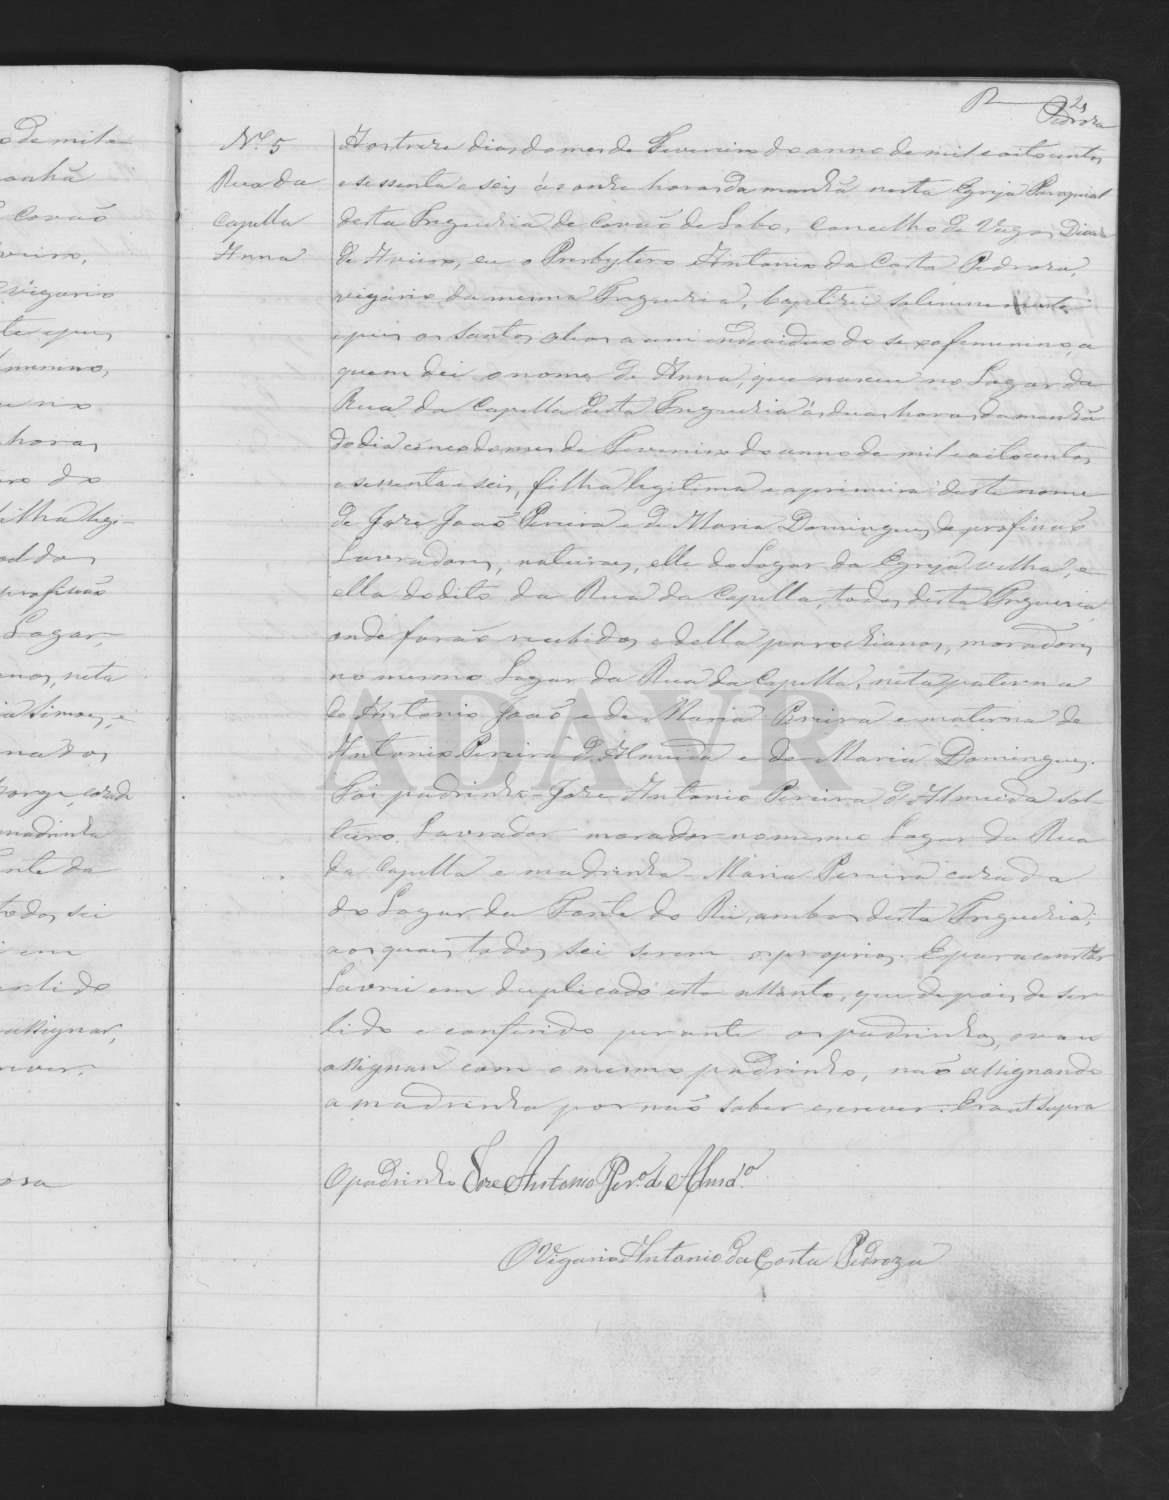 2
Pedroza
Nº 5
Rua da
Capella
Anna
Aos treze dias do mes de Fevereiro do anno de mil e oitocentos
e sessenta e seis, ás onze horas da manhã nesta Egreja Parrochial
desta Freguezia de Covão de Lobo, Concelho de Vagos, Dioce
de Aveiro, eu o Presbytero Antonio da Costa Pedroza,
vigario da mesma Freguezia, baptizei solemnemente
e puz os Santos Oleos a um individuo do sexo femenino, a
quem dei o nome de Anna, que nasceu no Lugar da
Rua da Capella desta Freguezia ás duas horas da manhã
do dia cinco do mes de Fevereiro do anno de mil e oitocentos
e sessenta e seis, filha legitima e a primeira deste nome
de Joze João Pereira e de Maria Domingues, de profissão
Lavradores, naturaes, elle do Lugar da Egreja velha, e
ella do dito da Rua da Capella, todos desta Freguezia,
onde forão recebidos e della parochianos, moradores
no mesmo Lugar da Rua da Capella, neta paterna
de Antonio João e de Maria Pereira e materna de
Antonio Pereira d'Almeida e de Maria Domingues.
Foi padrinho Joze Antonio Pereira d'Almeida sol-
teiro, Lavrador morador no mesmo Lugar da Rua
da Capella e madrinha Maria Pereira cazada
do Lugar da Fonte do Rio, ambos desta Freguezia;
aos quaes todos sei serem os proprios. E para constar
Lavrei em duplicado este assento, que depois de ser
lido e conferido perante os padrinhos, vou
assignar com o mesmo padrinho, não assignando
a madrinha por não saber escrever. Era ut supra
O padrinho Joze Antonio Perª. de Almdª.
O Vigario Antonio da Costa Pedroza
ADAVR